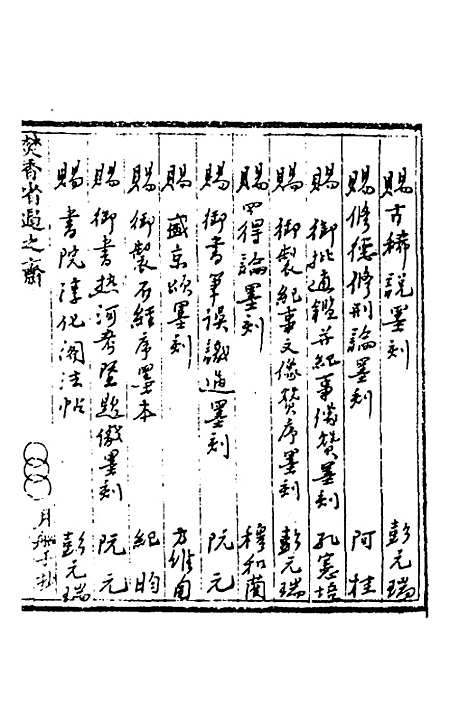 賜古稀說墨刻 彭元瑞
賜修德修刑論墨刻 阿桂
賜御批通鑑并紀事儀贊墨刻 孔憲培
賜御製紀事文儀贊序墨刻 彭元瑞
賜四得論墨刻 穆和藺
賜御書筆誤識過墨刻 阮元
賜盛京頌墨刻 方維甸
賜御製石經序墨本 紀昀
賜御書熱河考墨刻 阮元
賜書院淳化閣法帖 彭元瑞
焚香省過之齋
月舟子